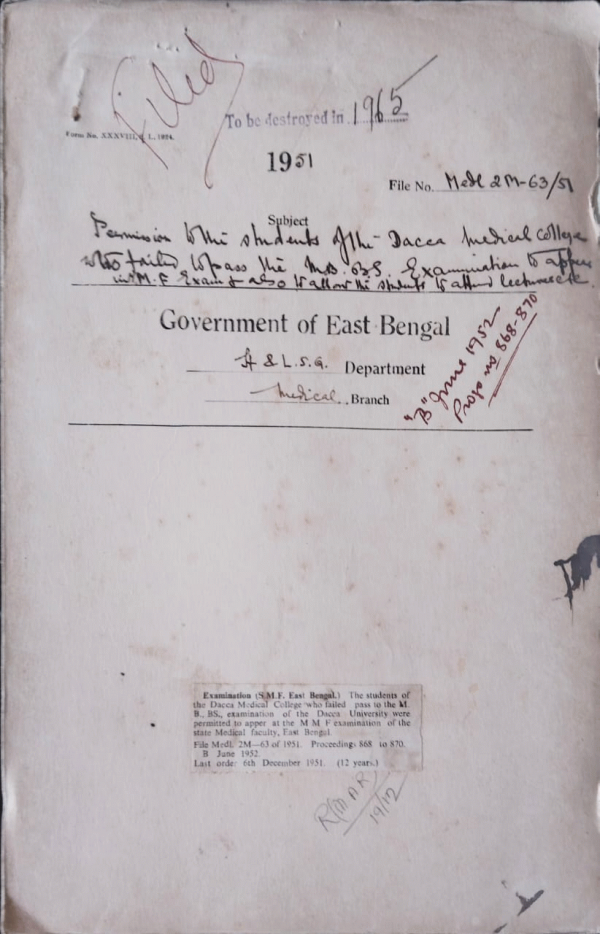 Filed
To be destroyed in 1965
Form No. XXXVIII, L. L., 1924.
1951
File No. Medl 2M-63/51
Subject
Permission to the students of the Dacca Medical College
who failed to pass the M.B.B.S. Examination to appear
in M.F Exam & also to allow the students to attend lectures etc.
Government of East Bengal
H & L.S.G. Department
Medical Branch
"B" June 1952
Progs no 868-870
Examination (S.M.F. East Bengal.) The students of
the Dacca Medical College who failed pass to the M.
B., BS., examination of the Dacca University were
permitted to apper at the M M F examination of the
state Medical faculty, East Bengal.
File Medl. 2M—63 of 1951. Proceedings 868 to 870.
B June 1952.
Last order 6th December 1951. (12 years.)
19/12